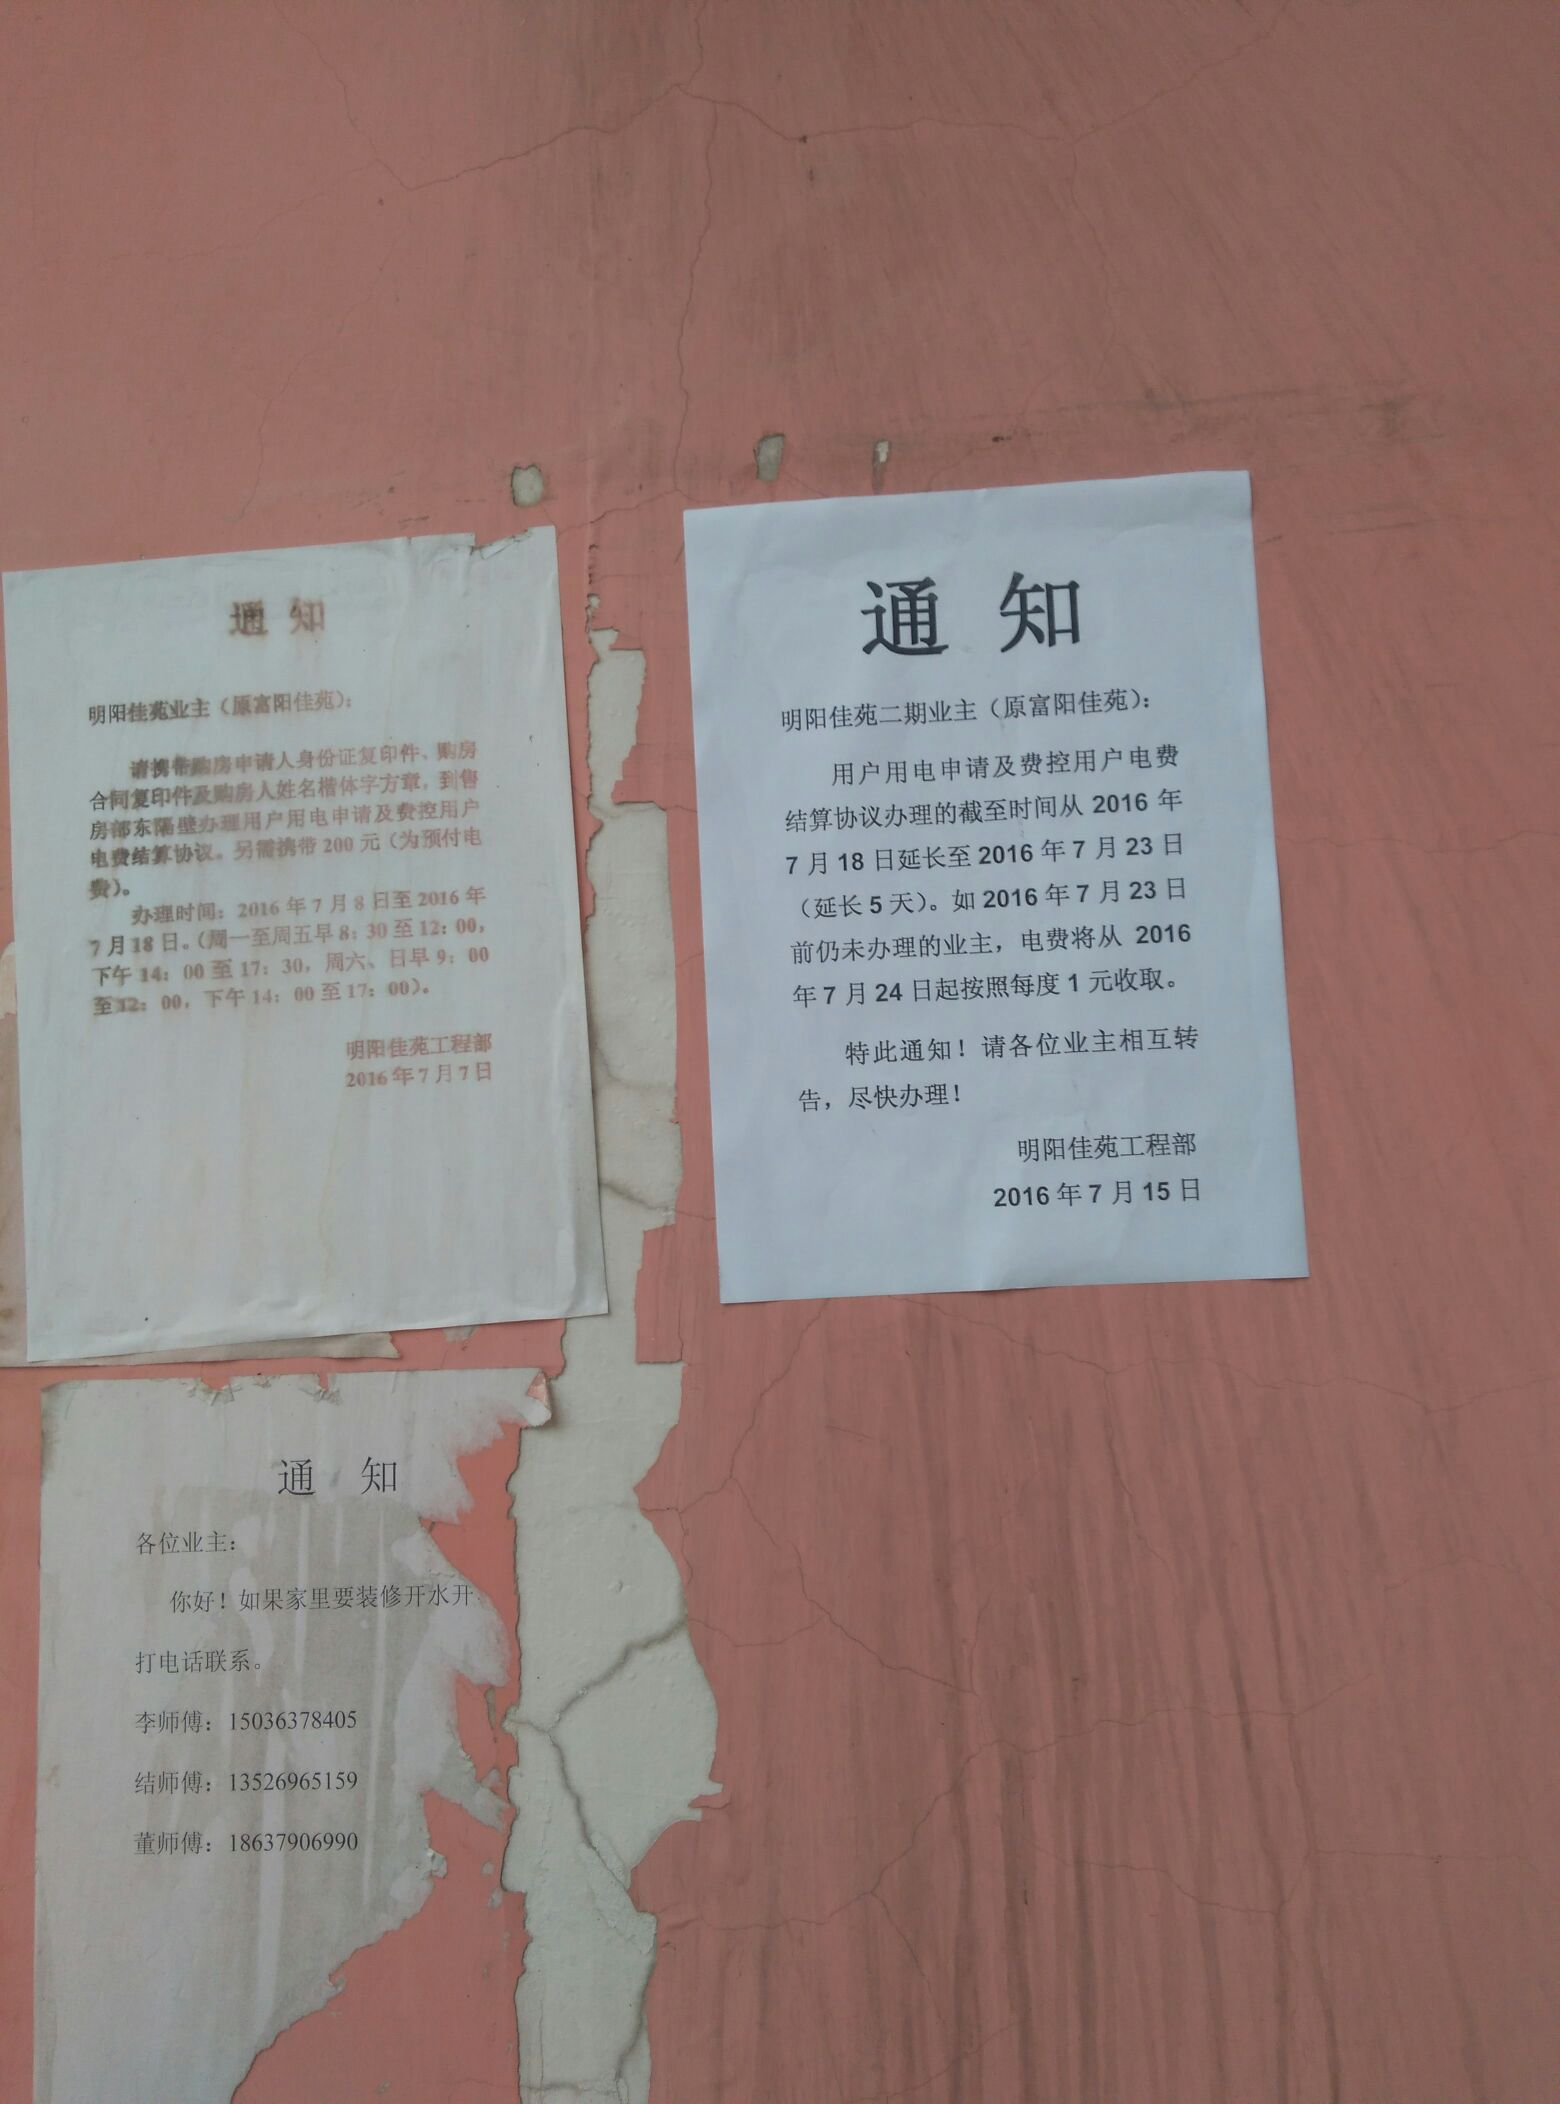 通 知
明阳佳苑业主（原富阳佳苑）：
请携带购房申请人身份证复印件、购房
合同复印件及购房人姓名楷体字方章，到售
房部东隔壁办理用户用电申请及费控用户
电费结算协议。另需携带200元（为预付电
费）。
办理时间：2016年7月8日至2016年
7月18日。（周一至周五早8：30至12：00，
下午14：00至17：30，周六、日早9：00
至12：00，下午14：00至17：00）。
明阳佳苑工程部
2016年7月7日
通 知
明阳佳苑二期业主（原富阳佳苑）：
用户用电申请及费控用户电费
结算协议办理的截至时间从2016年
7月18日延长至2016年7月23日
（延长5天）。如2016年7月23日
前仍未办理的业主，电费将从 2016
年7月24日起按照每度1元收取。
特此通知！请各位业主相互转
告，尽快办理！
明阳佳苑工程部
2016年7月15日
通 知
各位业主：
你好！如果家里要装修开水开
打电话联系。
李师傅：15036378405
结师傅：13526965159
董师傅：18637906990